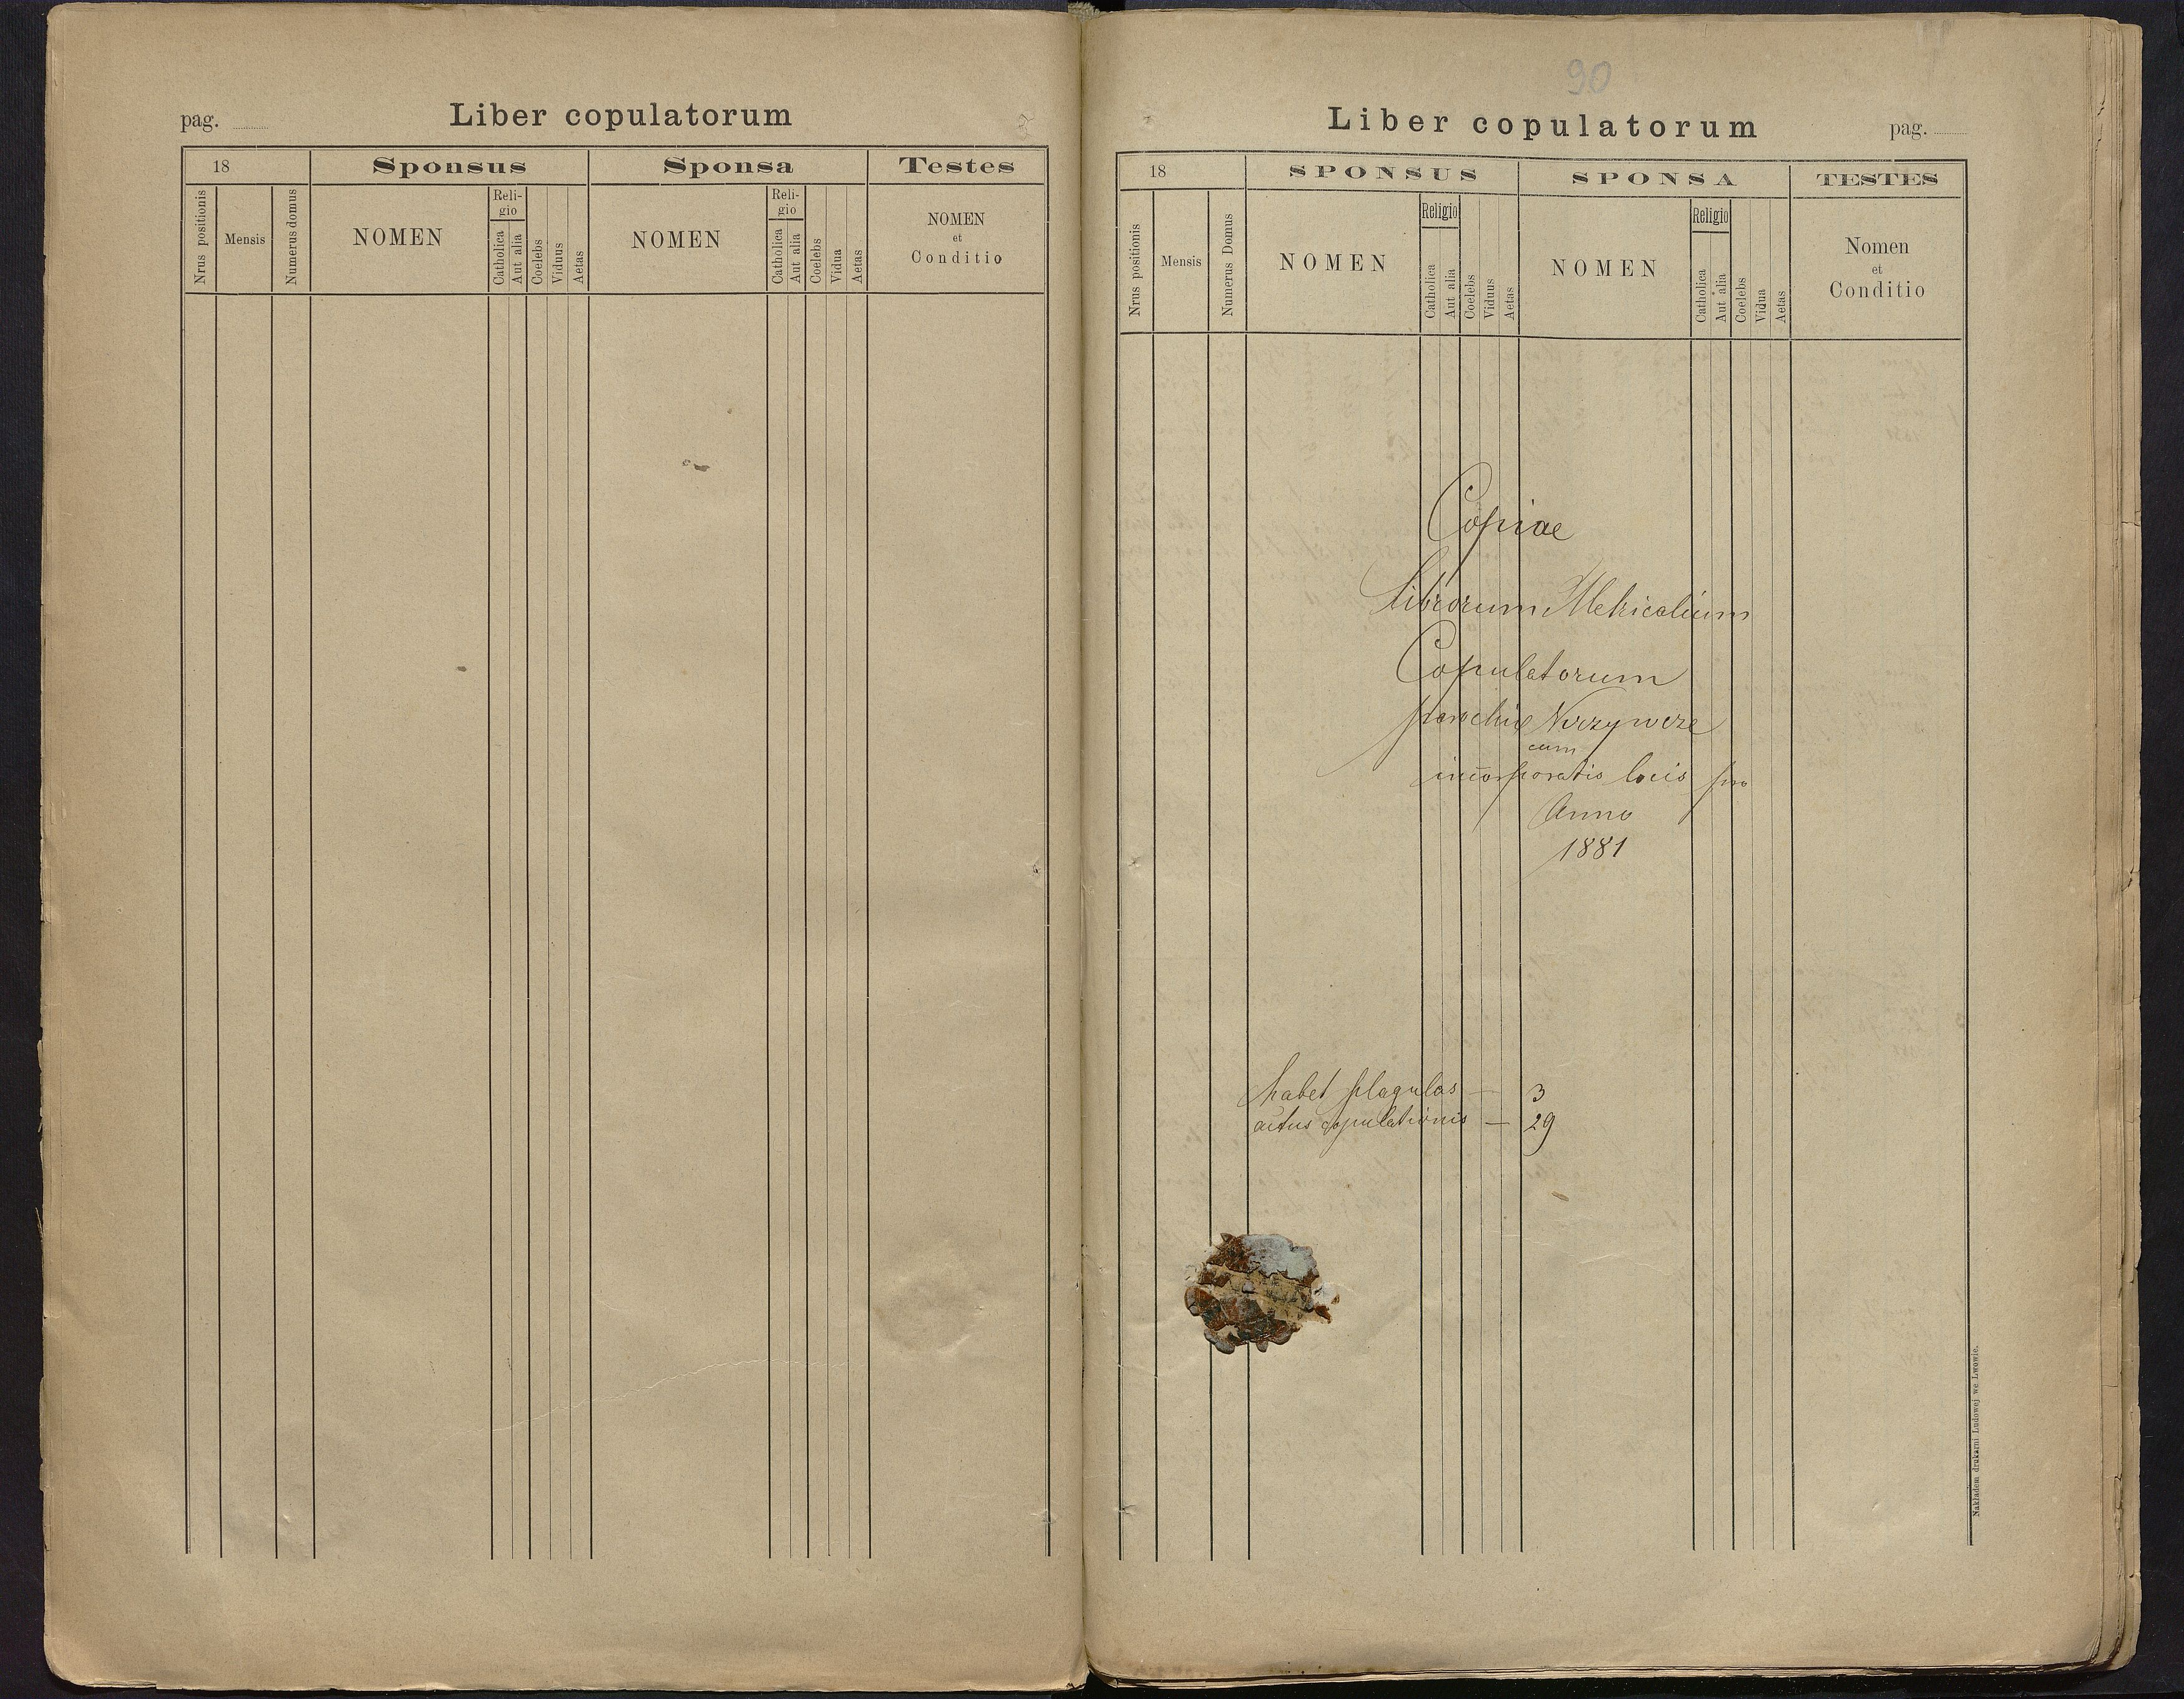 pag.
Liber copulatorum
18
Sponsus
Sponsa
Testes
Nrus positionis
Mensis
Numerus domus
NOMEN
Reli-
gio
Catholica
Aut alia
Coelebs
Viduus
Aetas
NOMEN
Reli-
gio
Catholica
Aut alia
Coelebs
Vidua
Aetas
NOMEN
et
Conditio
90
Liber copulatorum
pag.
18
SPONSUS
SPONSA
TESTES
Nrus positionis
Mensis
Numerus Domus
NOMEN
Religio
Catholica
Aut alia
Coelebs
Viduus
Aetas
NOMEN
Religio
Catholica
Aut alia
Coelebs
Vidua
Aetas
Nomen
et
Conditio
Copiae
Librorum Metricalium
Copulatorum
parochiae
cum
incorporatis locis pro
Anno
1881
habet plagulas — 3
actus copulationis — 29
Nakładem drukarni Ludowej we Lwowie.